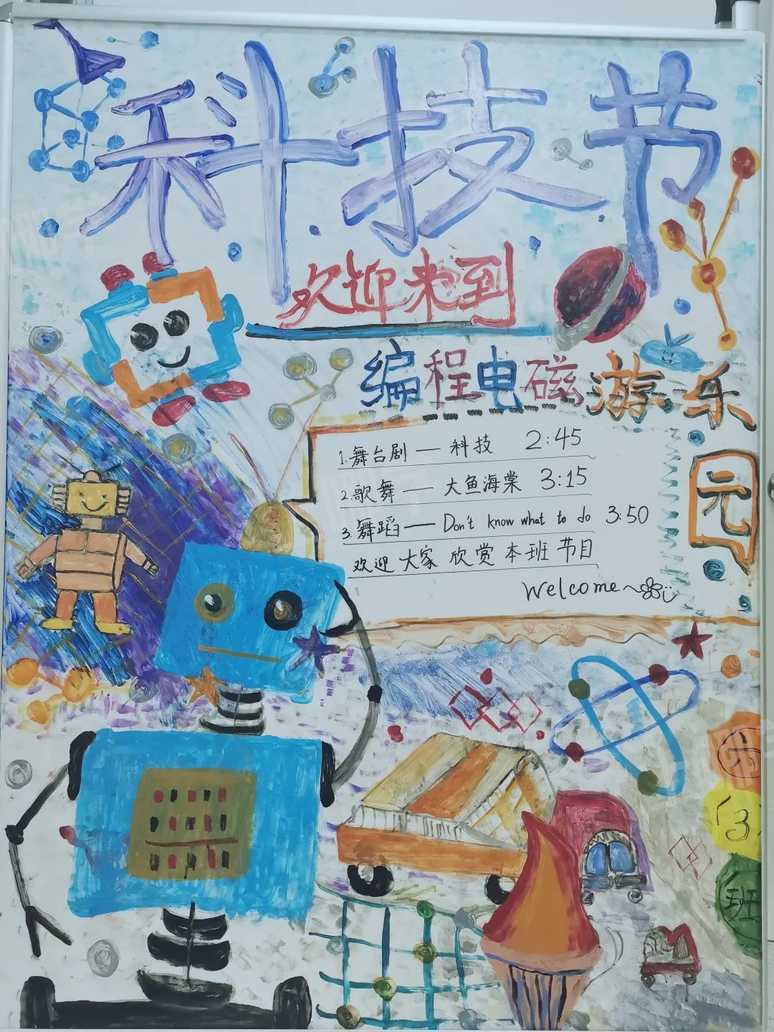 科技节
欢迎来到
编程电磁游乐
园
1.舞台剧 — 科技 2:45
2.歌舞 — 大鱼海棠 3:15
3.舞蹈 — Don't know what to do 3:50
欢迎大家欣赏本班节目
Welcome~
六
(3)
班